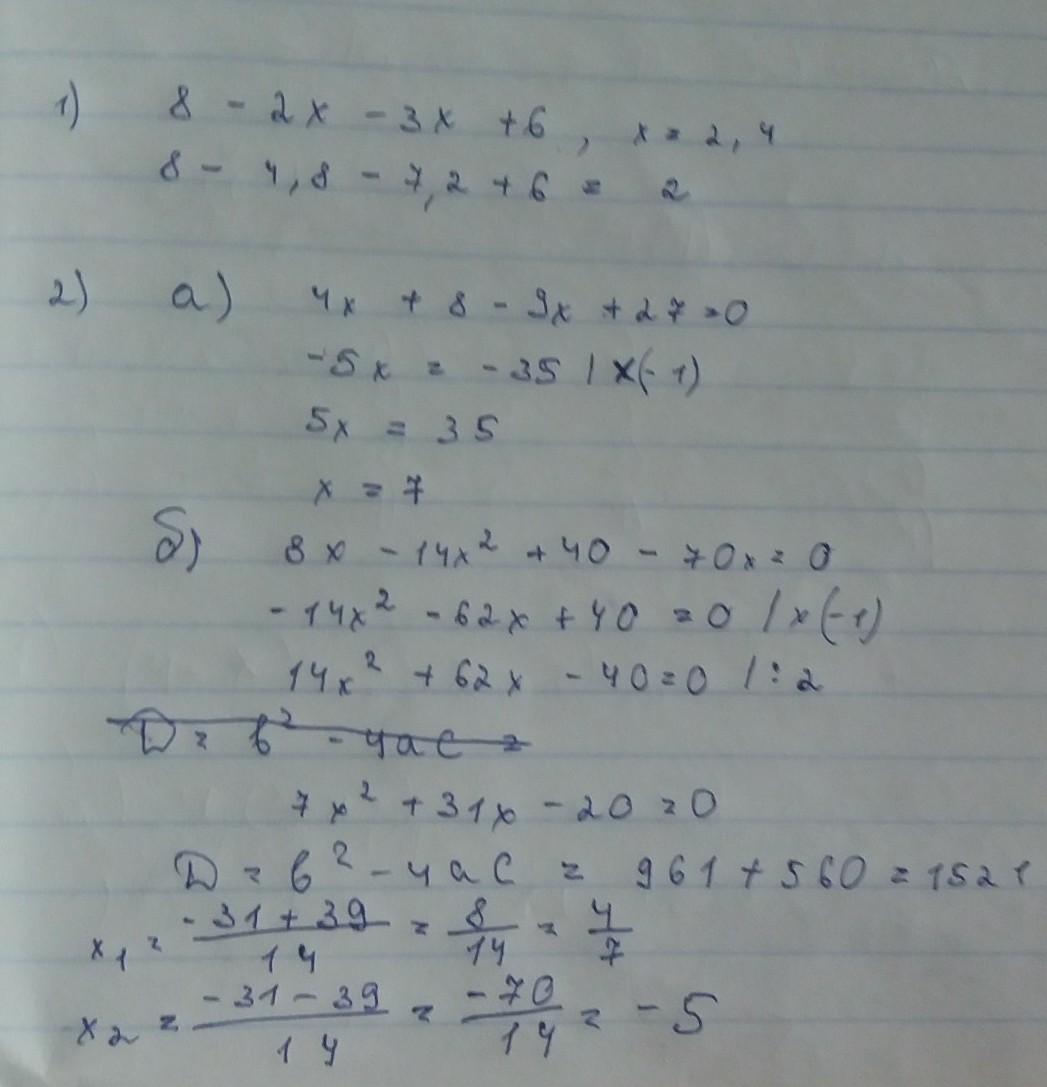 1) 8 - 2x - 3x + 6 , x = 2,4
8 - 4,8 - 7,2 + 6 = 2
2) а) 4x + 8 - 9x + 27 = 0
-5x = -35 | x(-1)
5x = 35
x = 7
б) 8x - 14x² + 40 - 70x = 0
- 14x² - 62x + 40 = 0 / x(-1)
14x² + 62x - 40 = 0 | : 2
D = b² - 4ac =
7x² + 31x - 20 = 0
D = b² - 4ac = 961 + 560 = 1521
x₁ = (-31 + 39)/14 = 8/14 = 4/7
x₂ = (-31 - 39)/14 = -70/14 = -5